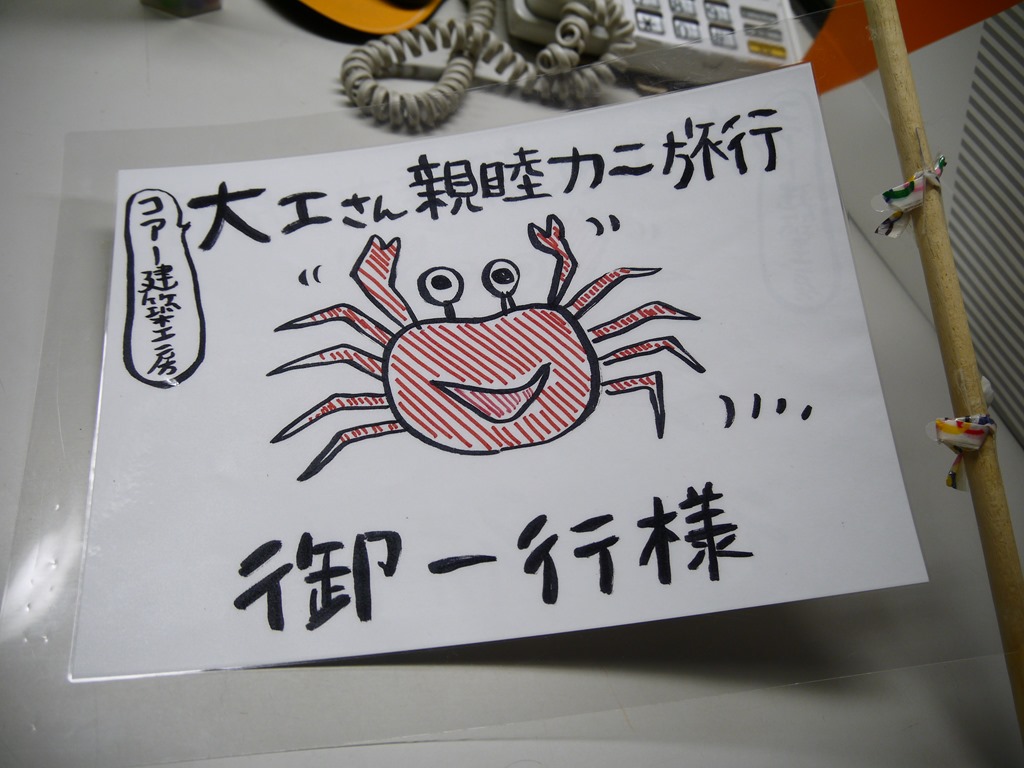 大工さん親睦カニ旅行
コアー建築工房
御一行様